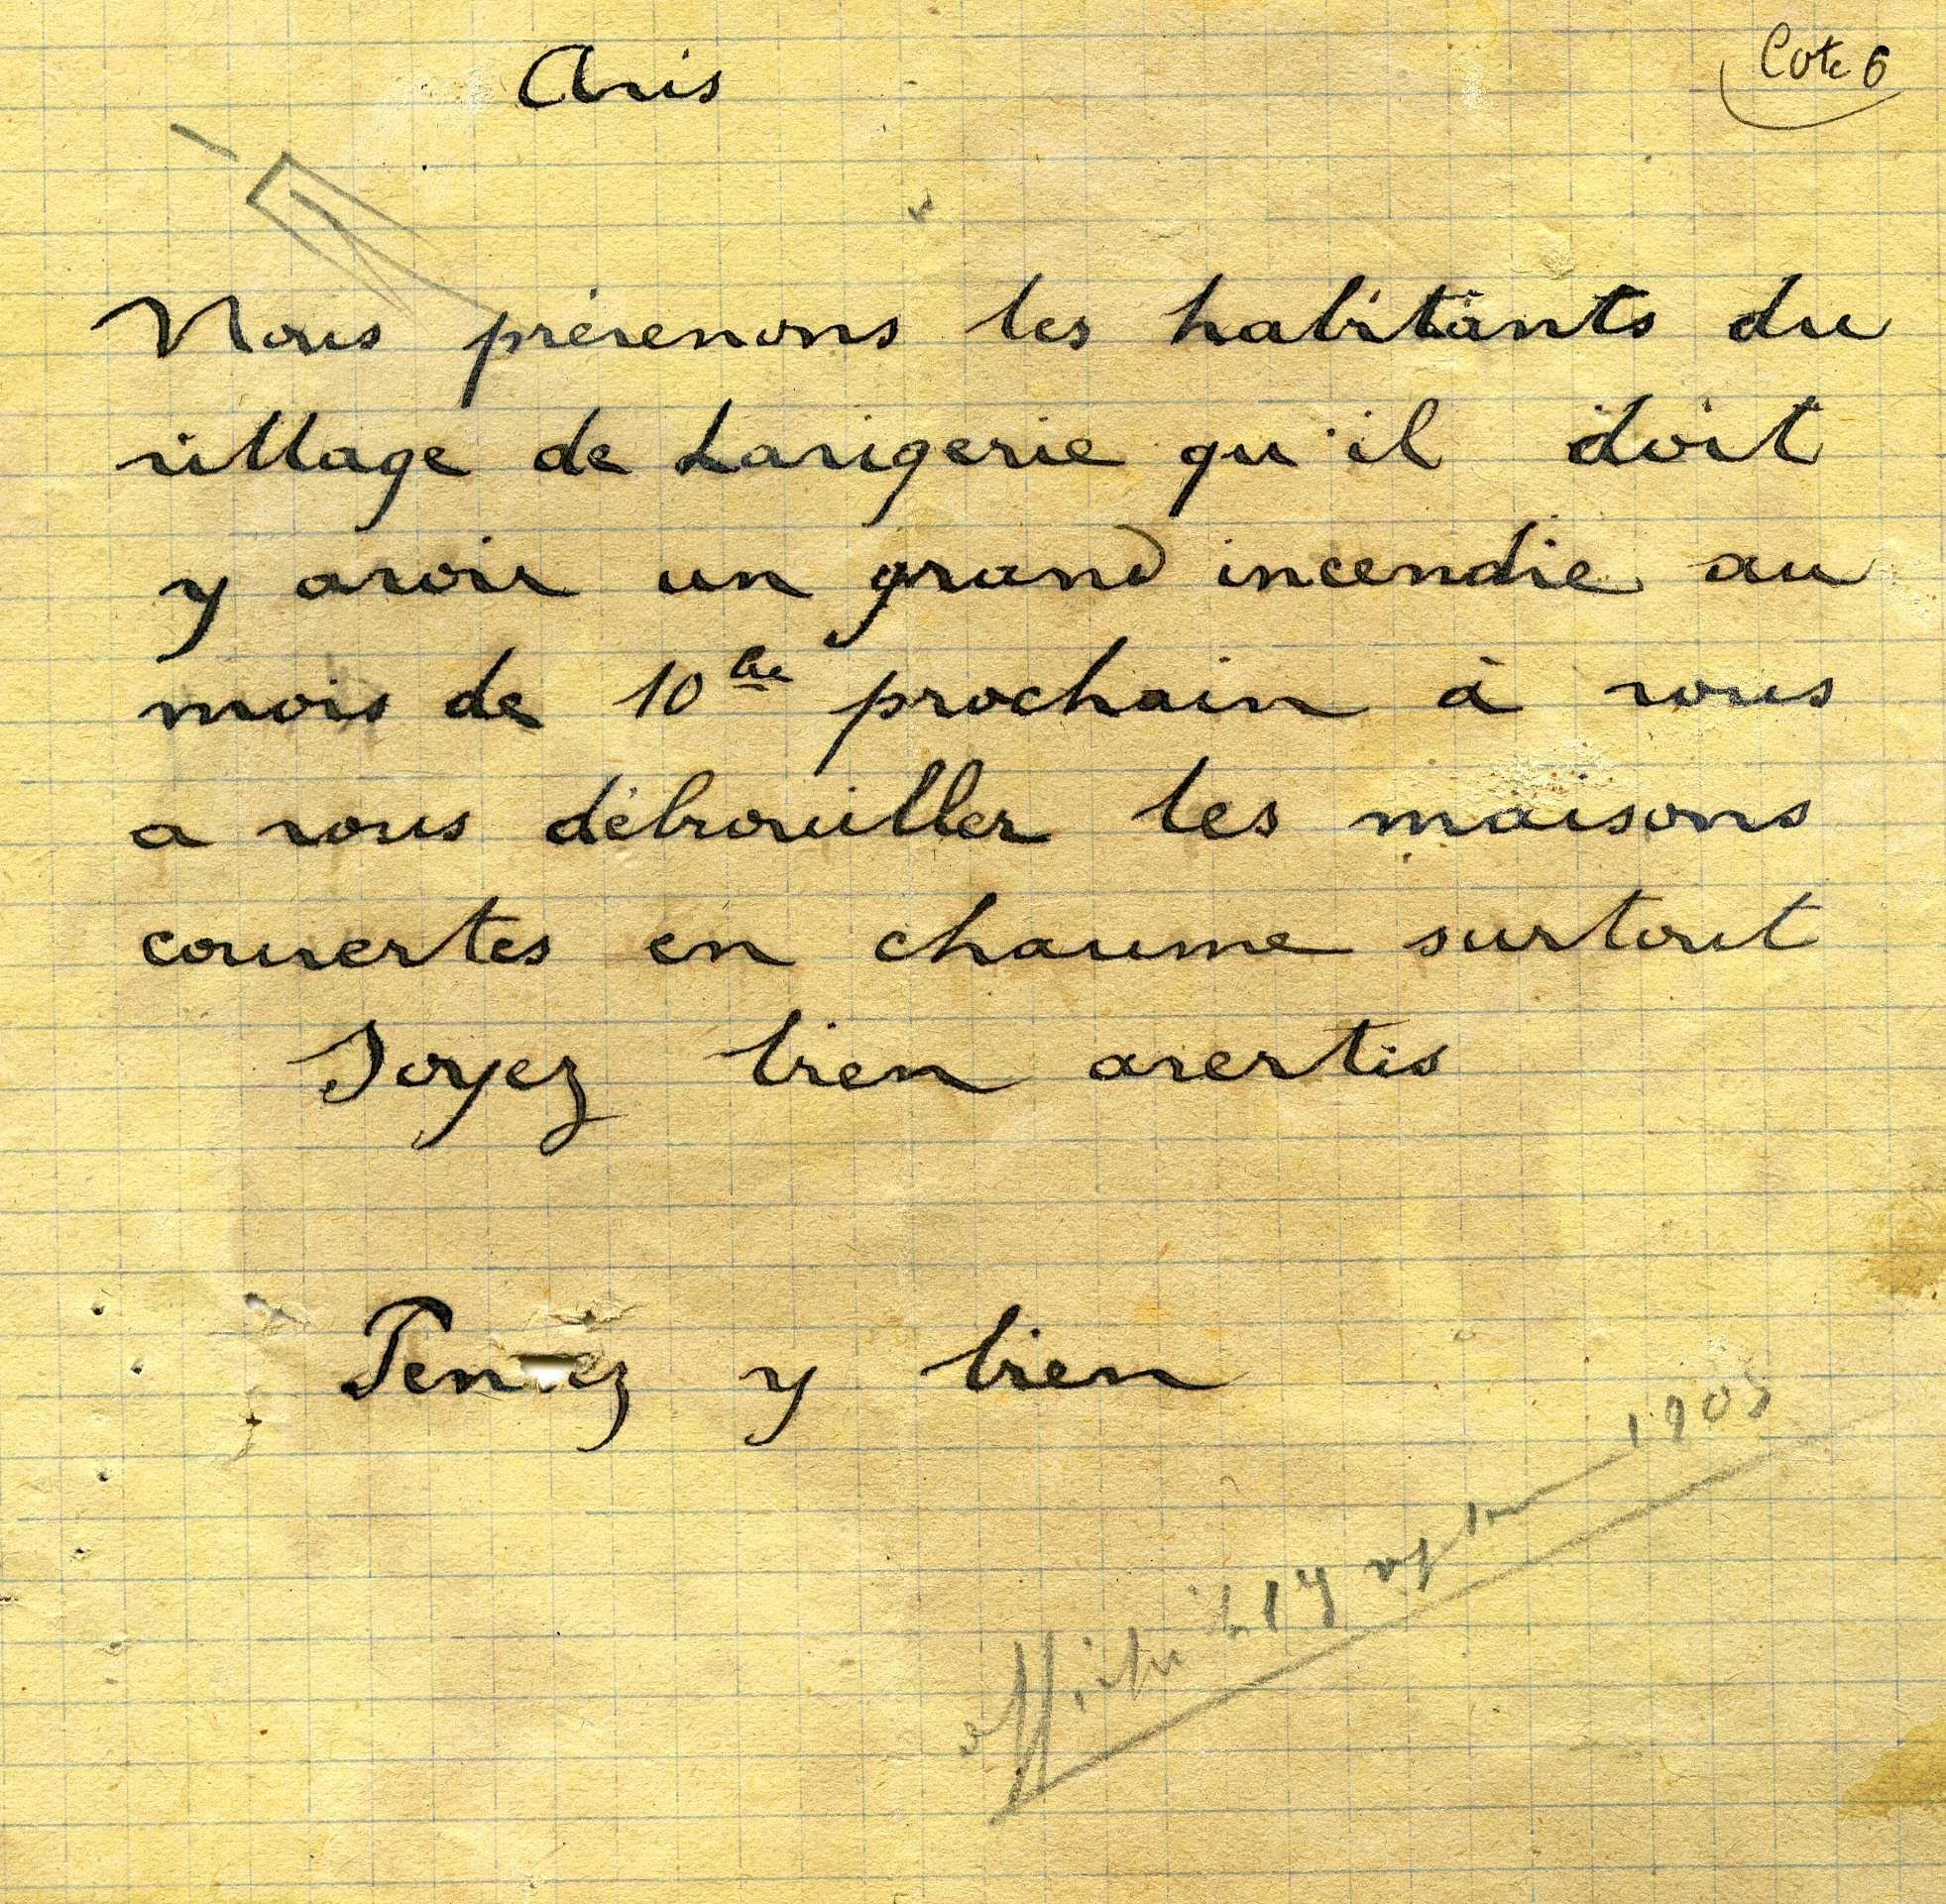 Avis
Cote 6
Nous prévenons les habitants du
village de Lavigerie qu'il doit
y avoir un grand incendie au
mois de 10bre prochain à vous
a vous débrouiller les maisons
couvertes en chaume surtout
Soyez bien avertis
Pensez y bien
affiché le 17 septembre 1905